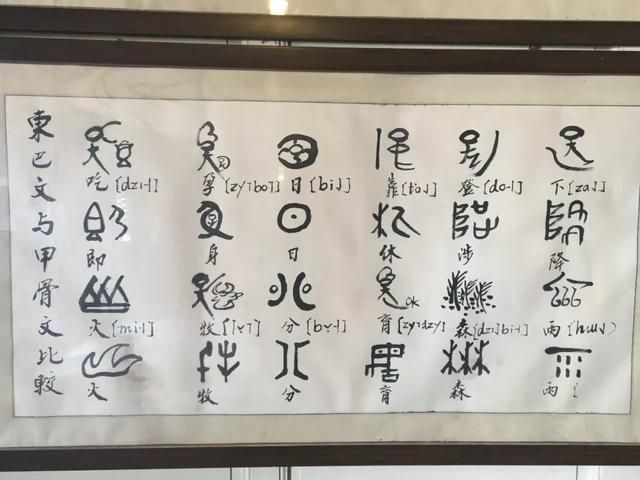 東巴文与甲骨文比較
吃[dzɿ˧] 孕[zy˥bo˥] 日[bi˩] 靠[to˩] 登[do˧] 下[za˩]
即 身 日 休 涉 降
火[mi˧] 牧[lv˥] 分[bv˧] 育[zy˥dzy˩] 森[dzɿ˩bi˧] 雨[hɯ˩]
火 牧 分 育 森 雨